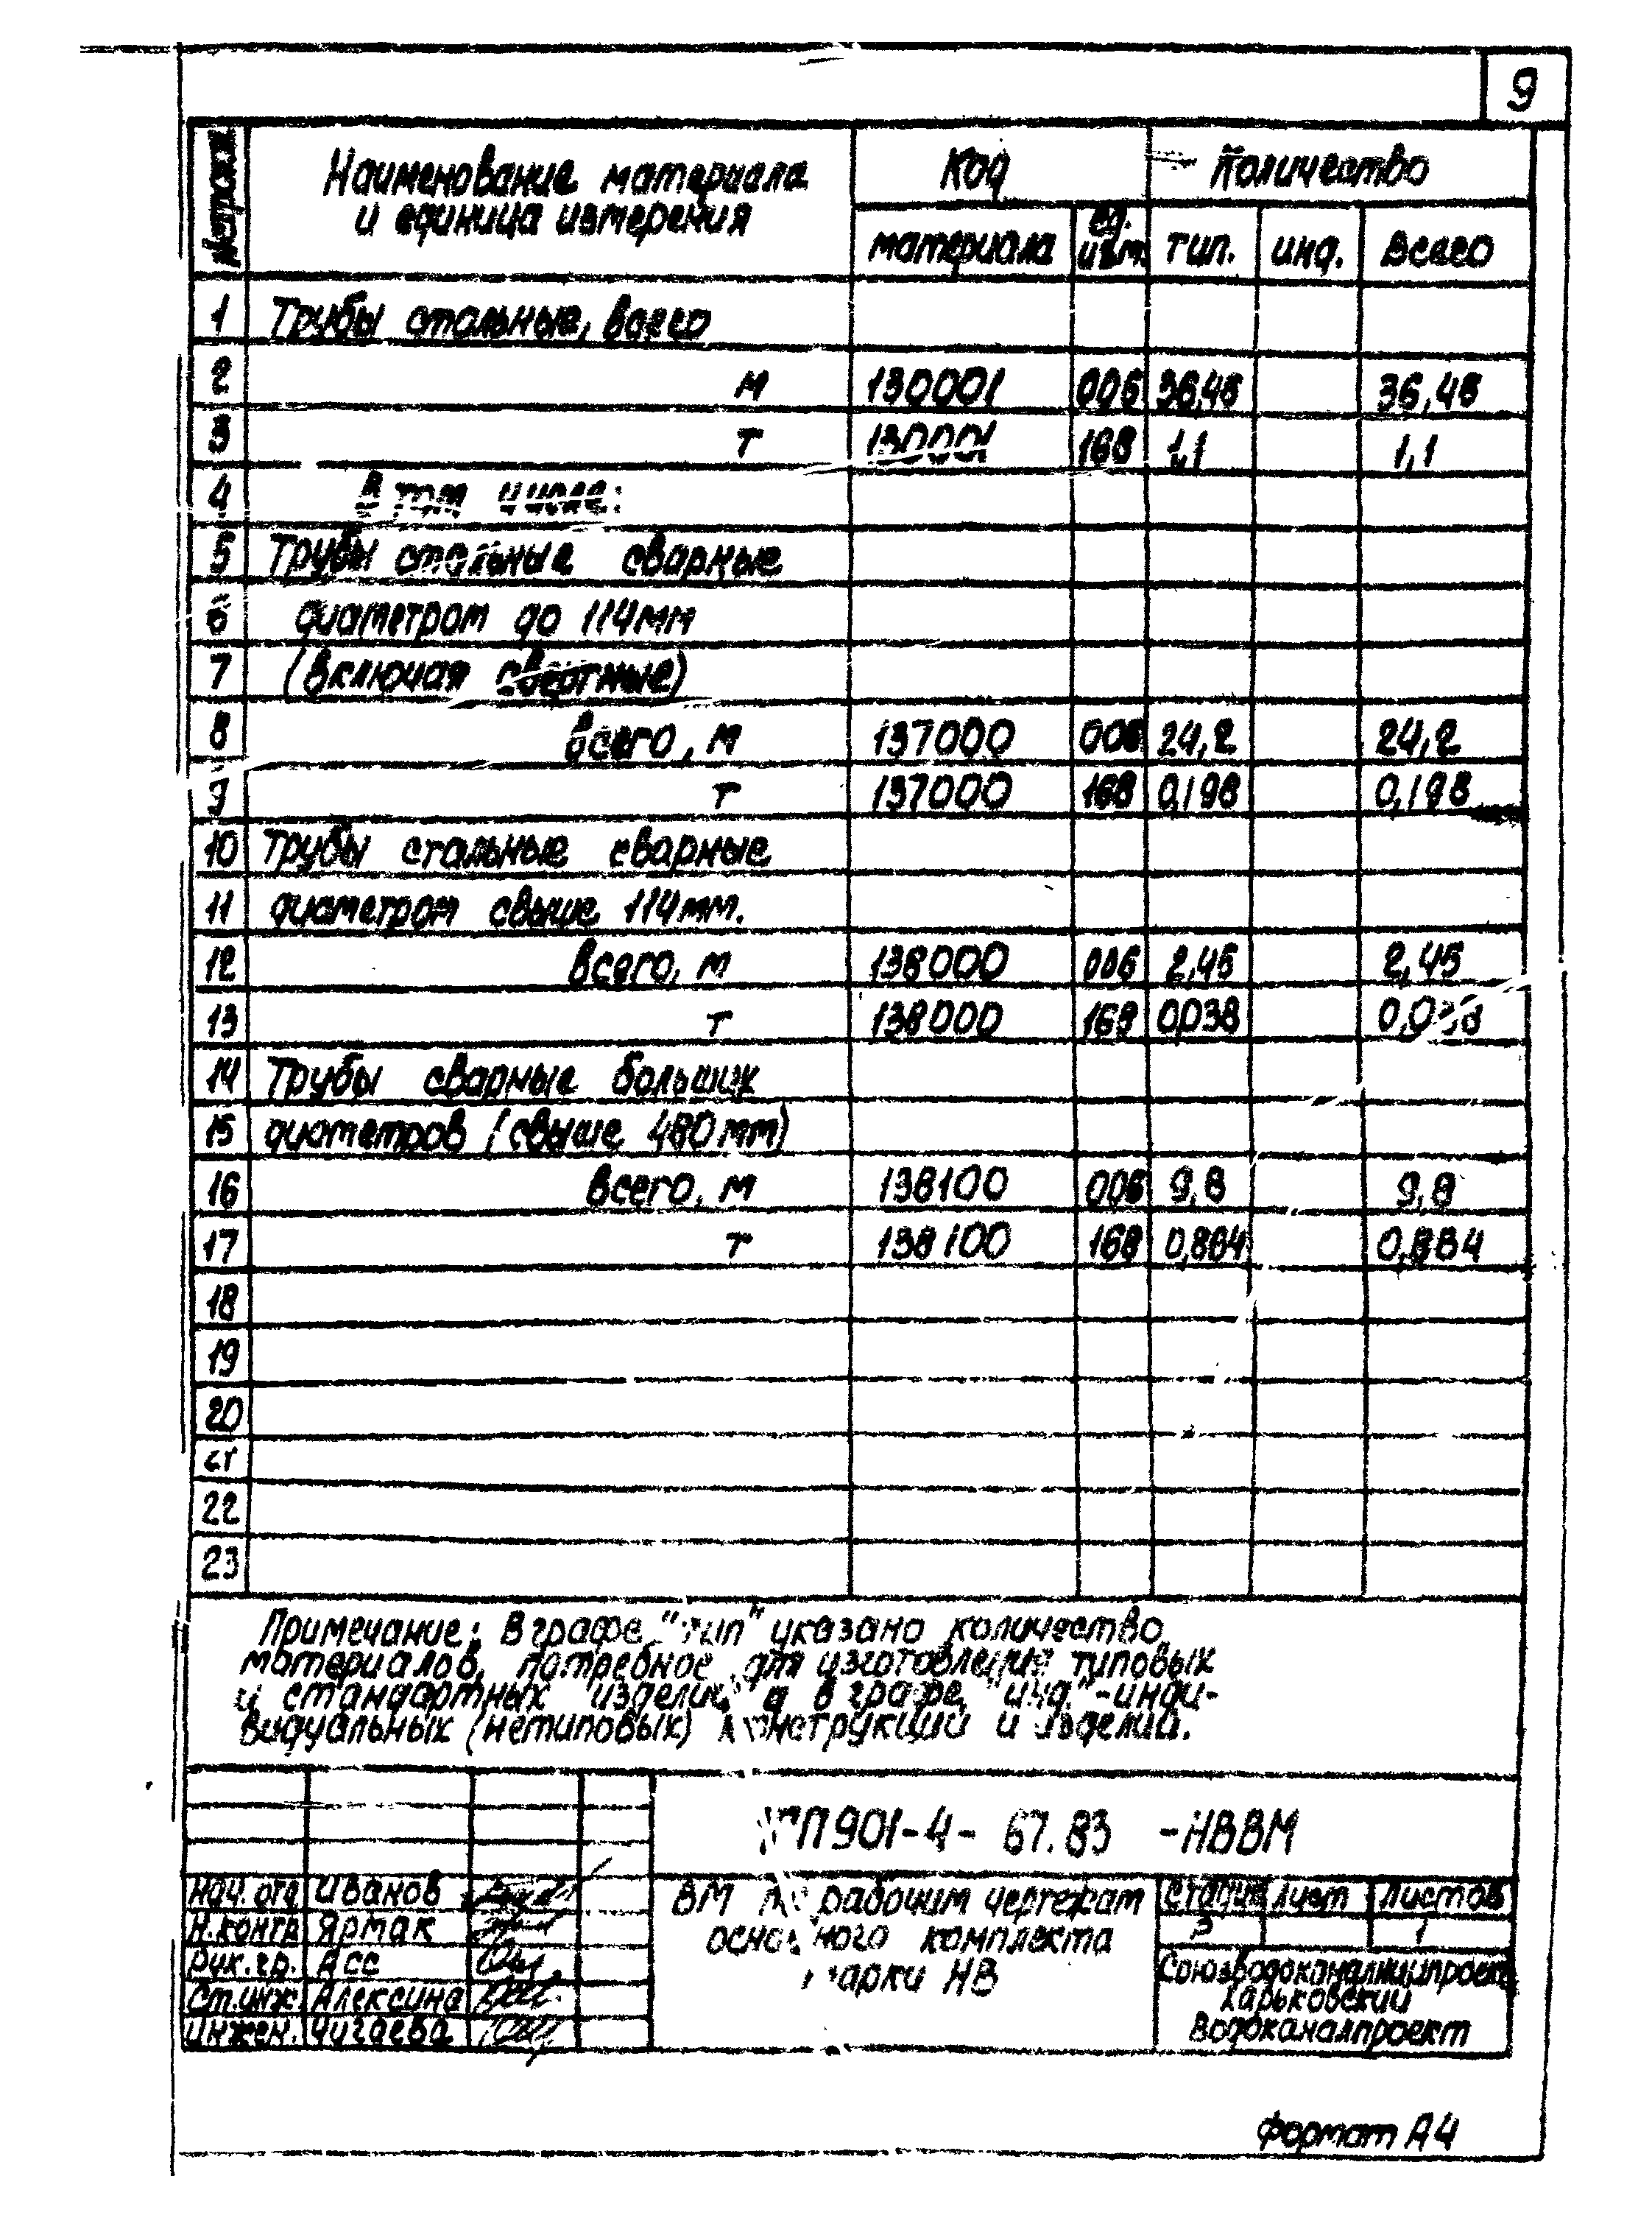 9
№ строки Наименование материала и единица измерения Код Количество
материала ед. изм. тип. инд. всего
1 Трубы стальные, всего
2 м 130001 006 36,45 36,45
3 т 130001 168 1,1 1,1
4 В том числе:
5 Трубы стальные сварные
6 диаметром до 114мм
7 (включая свертные)
8 всего, м 137000 006 24,2 24,2
9 т 137000 168 0,198 0,198
10 Трубы стальные сварные
11 диаметром свыше 114мм.
12 всего, м 138000 006 2,45 2,45
13 т 138000 168 0,038 0,038
14 Трубы сварные больших
15 диаметров (свыше 480мм)
16 всего, м 138100 006 9,8 9,8
17 т 138100 168 0,864 0,864
18
19
20
21
22
23
Примечание: В графе "тип" указано количество
материалов, потребное для изготовления типовых
и стандартных изделий, а в графе "инд." - инди-
видуальных (нетиповых) конструкций и изделий.
ТП 901-4-67.83 -НВВМ
Нач. отд Иванов
Н.контр Ярмак
Рук.гр. Асс
Ст.инж Алексина
Инжен. Чигаева
ВМ по рабочим чертежам
основного комплекта
марки НВ
Стадия Лист Листов
Р 1
Союзводоканалниипроект
Харьковский
Водоканалпроект
Формат А4